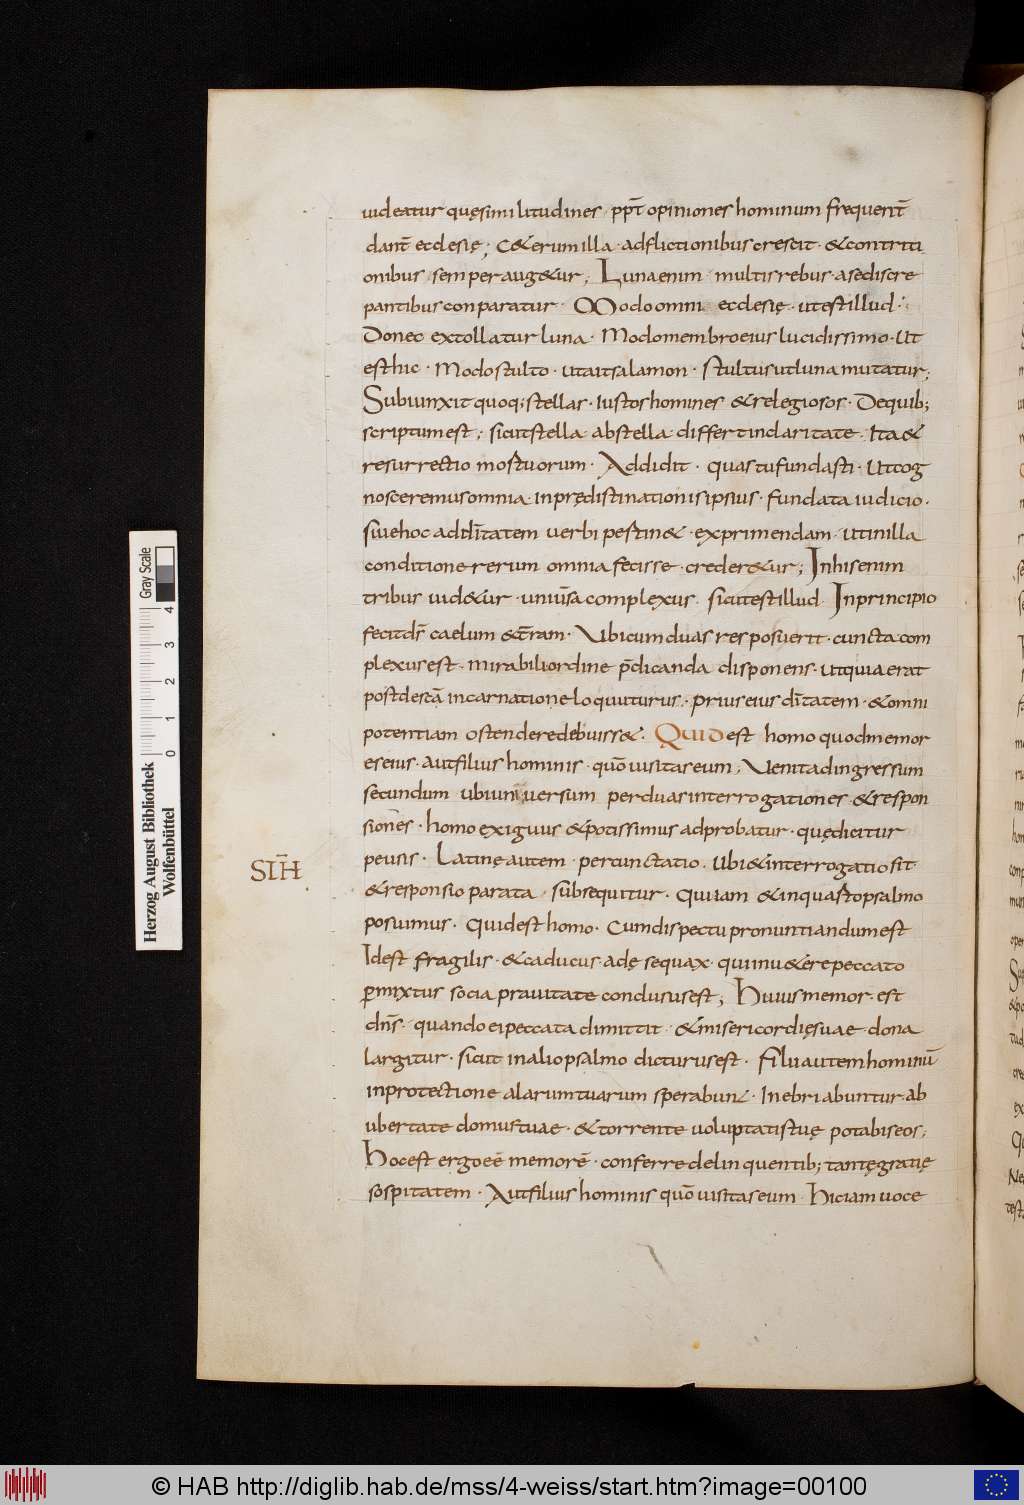 uideatur quęsimilitudines · pp̄t opiniones hominum frequent̄
dant̄ ecclesię; C&erum illa · adflictionibus crescit · & contriti
onibus semper aug&ur; Luna enim multis rebus · a se discre
pantibus conparatur · Modo omni ecclesię · ut est illud ·
Donec extollatur luna · Modo membro eius lucidissimo · ut
est hic · Modo stulto · ut ait salamon · stultus ut luna mutatur;
Subiunxit quoq; stellas · iustos homines & relegiosos · De quib;
scriptum est; sicut stella ab stella differt in claritate · Ita &
resurrectio mortuorum · Addidit · quas tu fundasti · Ut cog
nosceremus omnia in prędistinationis ipsius · fundata iudicio ·
siue hoc ad dītatem uerbi pestin& · exprimendam · ut in illa
conditione rerum omnia fecisse · creder&ur; In his enim
tribus uid&ur · uniūsa complexus · sicut est illud · In principio
fecit ds̄ caelum & t̄ram · Ubi cum duas res posuerit · cuncta com
plexus est · mirabili ordine p̄dicanda disponens · ut quia erat
post de scā incarnatione loquuturus · prius eius dītatem · & omni
potentiam ostendere debuiss& · QUID est homo quod memor
es eius · aut filius hominis · quō uisitas eum; Uenit ad ingressum
secundum ubi uniuersum per duas interrogationes & respon
siones · homo exiguus & potissimus adprobatur · quę dicitur
peusis · Latine autem percunctatio · ubi & interrogatio sit
SIH̄
& responsio parata · subsequitur · quiiam & in quarto psalmo
posuimus · Quid est homo · Cum dispectu pronuntiandum est
Id est fragilis · & caducus · adę sequax · qui inu&ere peccato
p̄mixtus socia prauitate conclusus est; Huius memor · est
dn̄s · quando ei peccata dimittit · & misericordię suae · dona
largitur · sicut in alio psalmo dicturus est · filii autem hominū
in protectione alarum tuarum sperabun& · Inebriabuntur · ab
ubertate domus tuae · & torrente uoluptatis tuę potabis eos;
Hoc est ergo eē memorē · conferre delinquentib; tantę gratię
sospitatem · Aut filius hominis quō uisitas eum · hic iam uoce
Herzog August Bibliothek
Wolfenbüttel
Gray Scale
0 1 2 3 4
© HAB http://diglib.hab.de/mss/4-weiss/start.htm?image=00100